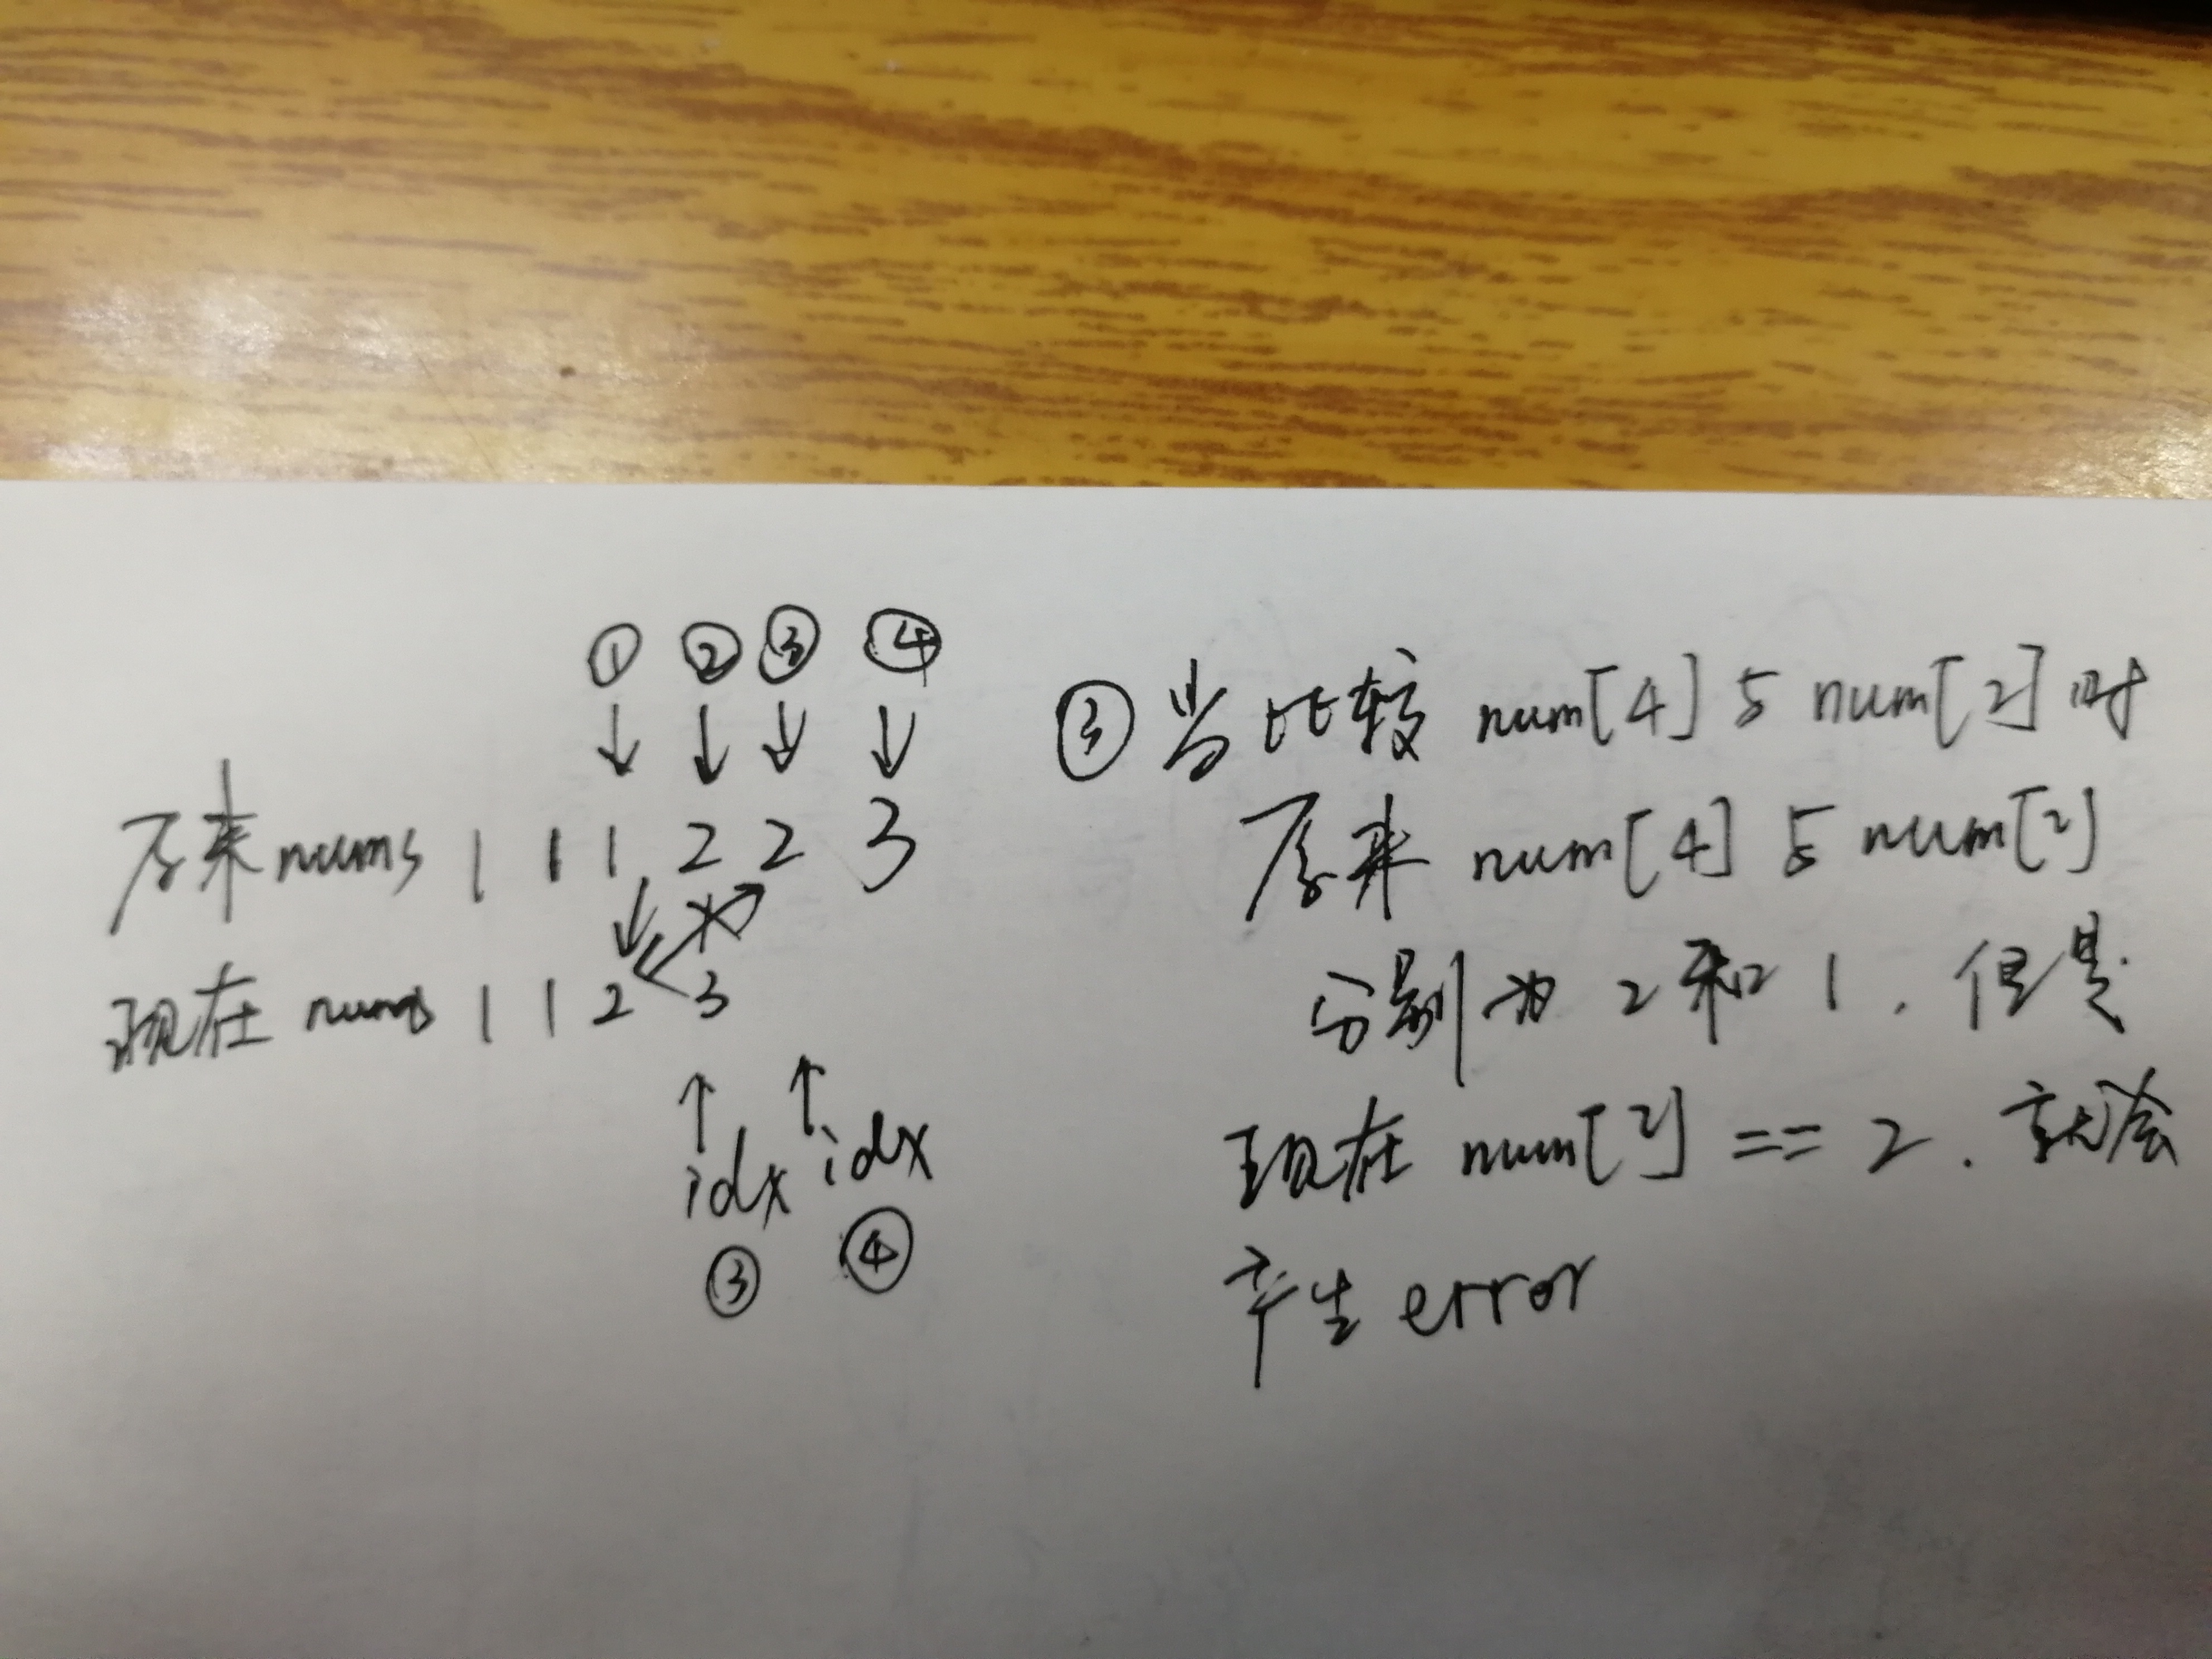 ① ② ③ ④
↓ ↓ ↓ ↓
原来nums 1 1 1 2 2 3
现在 nums 1 1 2 3
↑ ↑
idx idx
③ ④
③ 当比较 num[4] 与 num[2] 时
原来 num[4] 与 num[2]
分别为 2 和 1 . 但是
现在 num[2] == 2 . 就会
产生 error